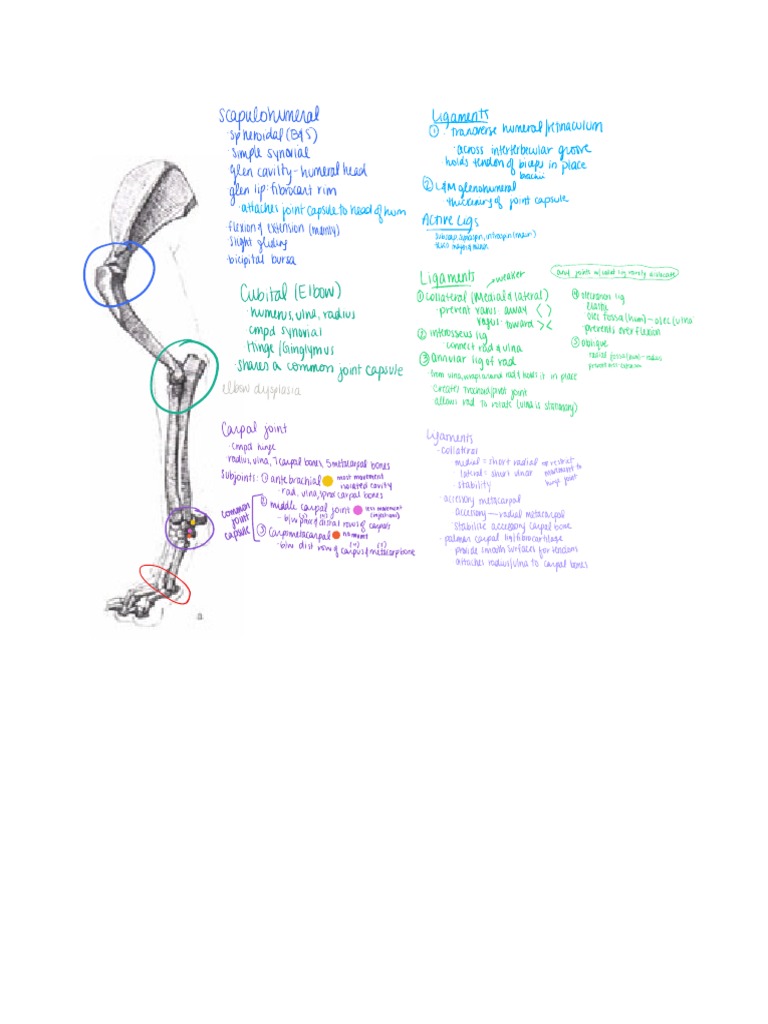 Scapulohumeral
· spheroidal (B&S)
· simple synovial
glen cavity - humeral head
glen lip: fibrocart rim
· attaches joint capsule to head of hum
flexion & extension (mainly)
slight gliding
· bicipital bursa
Ligaments
① · Tranverse humeral/retinaculum
· across intertubecular groove
holds tendon of biceps in place
brachii
② L&M glenohumeral
· thickening of joint capsule
Active Ligs
Cubital (Elbow)
· humerus, ulna, radius
cmpd synovial
Hinge/Ginglymus
· shares a common joint capsule
elbow dysplasia
Ligaments
weaker
① collateral (Medial & lateral)
· prevent varus: away < >
valgus: toward > <
② interosseus lig
connect rad & ulna
③ annular lig of rad
from ulna, wraps around rad & holds it in place
· creates trochoid/pivot joint
allows rad to rotate (ulna is stationary)
④ olecranon lig
elastic
olec fossa (hum) - olec (ulna
· prevents over flexion
⑤ oblique
Carpal joint
· cmpd hinge
radius, ulna, 7 carpal bones, 5 metacarpal bones
Subjoints: ① antebrachial
most movement
isolated cavity
· rad, ulna, prox carpal bones
common
joint
capsule
② middle carpal joint
less movement
- b/w prox & distal rows of carpals
③ carpometacarpal
no mvmt
· b/w dist row of carpus & metacarp bone
Ligaments
· collateral
medial = short radial
lateral = short ulnar
· restrict
movement to
hinge joint
· stability
· accessory metacarpal
accessory — radial metacarpal
stabilize accessory carpal bone
· palmer carpal lig/fibrocartilage
provide smooth surfaces for tendons
attaches radius/ulna to carpal bones
a